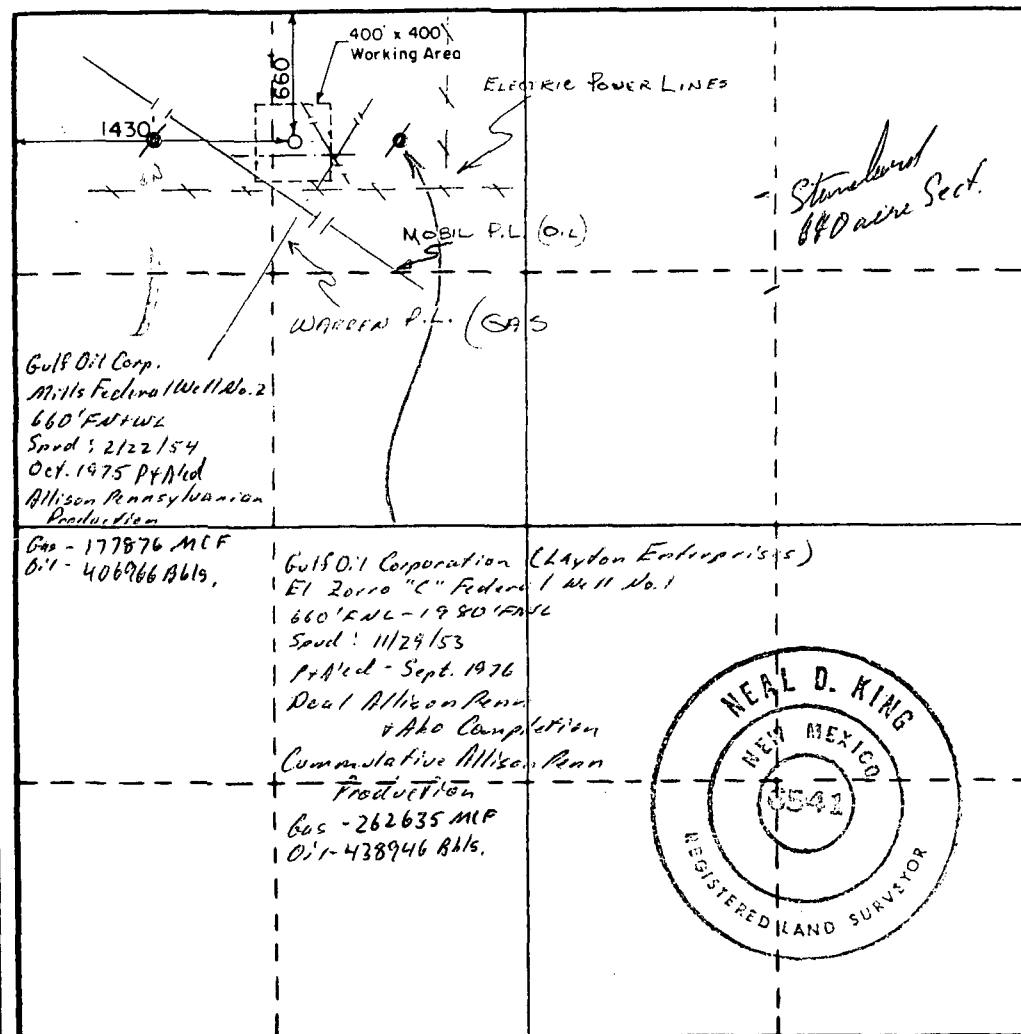 400' x 400'
Working Area
660'
1430'
ELECTRIC POWER LINES
Standard
640 acre Sect.
MOBIL P.L. (OIL)
WARREN P.L. (GAS
Gulf Oil Corp.
Mills Federal Well No. 2
660' FN+WL
Spud: 2/22/54
Oct. 1975 P+A'ed
Allison Pennsylvanian
Production
Gas - 177876 MCF
Oil - 406966 Bbls.
Gulf Oil Corporation (Layton Enterprises)
El Zorro "C" Federal Well No. 1
660' FNL - 1980' FWL
Spud: 11/29/53
P+A'ed - Sept. 1976
Dual Allison Penn
+ Abo Completion
Commulative Allison Penn
Production
Gas - 262635 MCF
Oil - 438946 Bbls.
NEAL D. KING
NEW MEXICO
6541
REGISTERED LAND SURVEYOR